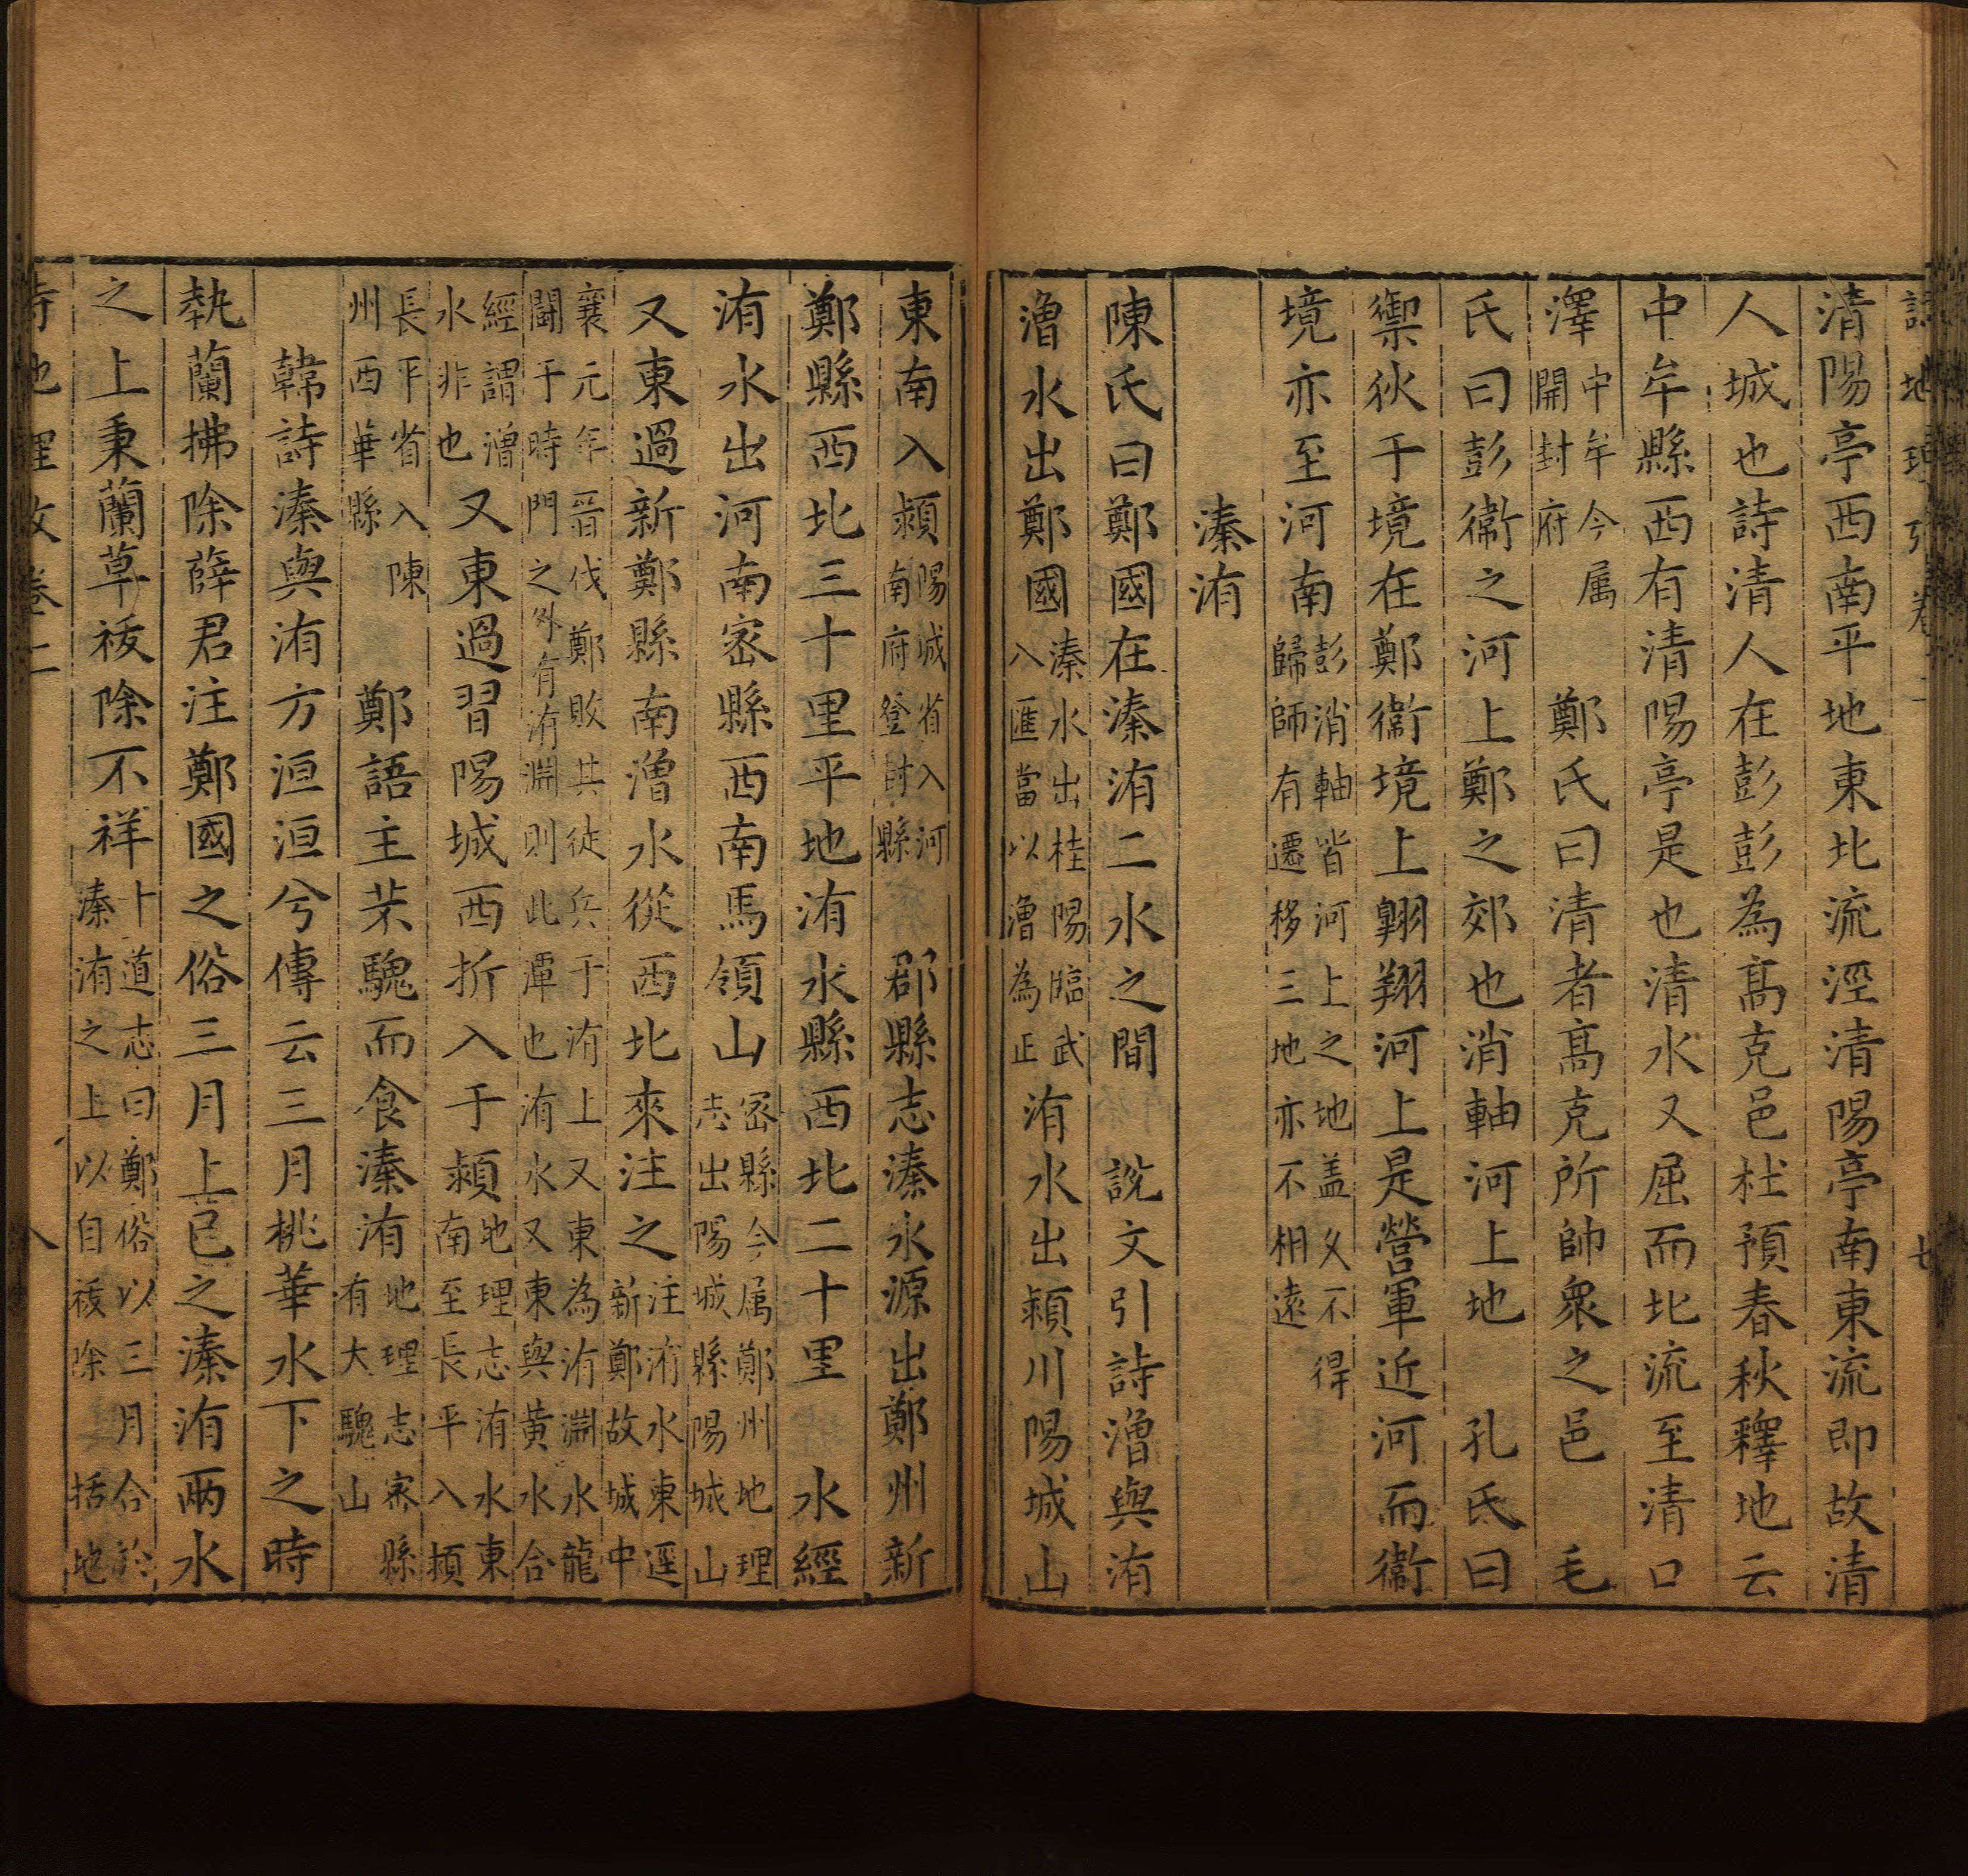 清陽亭西南平地東北流逕清陽亭南東流即故清
人城也詩清人在彭彭為髙克邑杜預春秋釋地云
中牟縣西有清陽亭是也清水又屈而北流至清口
澤中牟今属開封府 鄭氏曰清者髙克所帥衆之邑 毛
氏曰彭衞之河上鄭之郊也消軸河上地 孔氏曰
禦狄于境在鄭衞境上翺翔河上是營軍近河而衞
境亦至河南彭消軸皆河上之地盖久不得歸師有遷移三地亦不相遠
溱洧
陳氏曰鄭國在溱洧二水之間 說文引詩潧與洧
潧水出鄭國溱水出桂陽臨武入匯當以潧為正洧水出潁川陽城山
東南入潁陽城省入河南府登封縣 郡縣志溱水源出鄭州新
鄭縣西北三十里平地洧水縣西北二十里 水經
洧水出河南宻縣西南馬領山宻縣今属鄭州地理志出陽城縣陽城山
又東過新鄭縣南潧水從西北來注之注洧水東逕新鄭故城中
襄元年晉伐鄭敗其徒兵于洧上又東為洧淵水龍鬭于時門之外有洧淵則此潭也洧水又東與黄水合
經謂潧水非也又東過習陽城西折入于潁地理志洧水東南至長平入潁
長平省入陳州西華縣 鄭語主芣騩而食溱洧地理志宻縣有大騩山
韓詩溱與洧方洹洹兮傳云三月桃華水下之時
執蘭拂除薛君注鄭國之俗三月上巳之溱洧兩水
之上秉蘭草祓除不祥卜道志曰鄭俗以三月合於溱洧之上以自祓除 括地
詩地理攷卷二 八